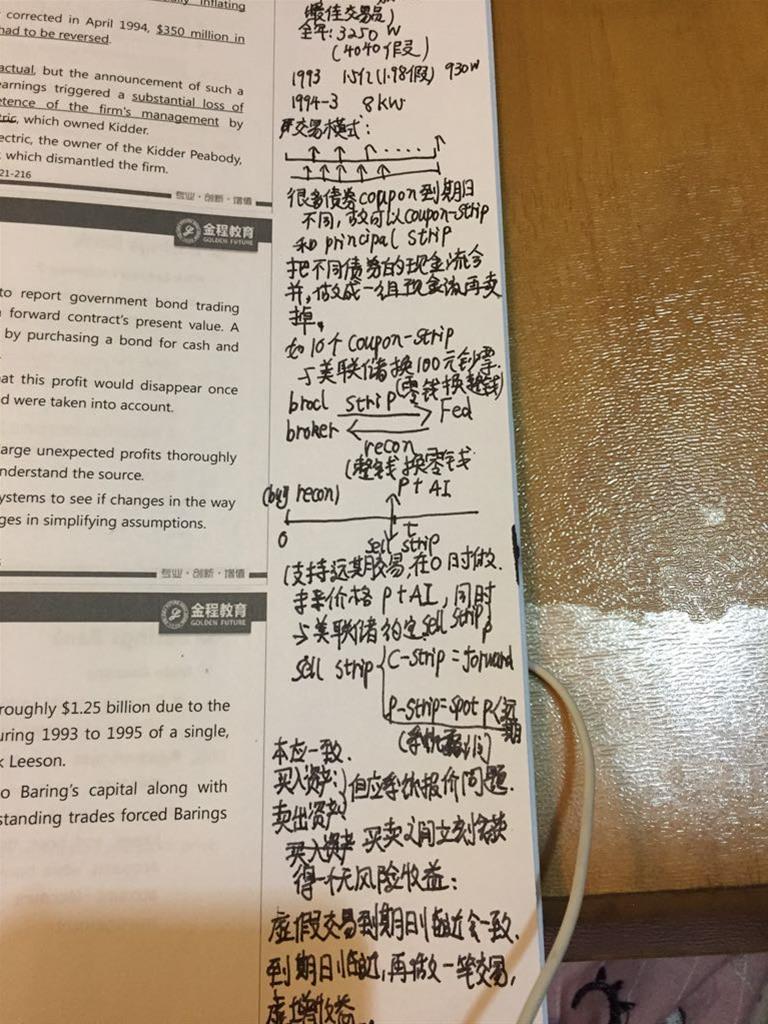 inflating
corrected in April 1994, $350 million in
had to be reversed.
actual, but the announcement of such a
earnings triggered a substantial loss of
tence of the firm's management by
tric, which owned Kidder.
ectric, the owner of the Kidder Peabody,
which dismantled the firm.
21-216
专业·创新·增值
金程教育
GOLDEN FUTURE
to report government bond trading
forward contract's present value. A
by purchasing a bond for cash and
at this profit would disappear once
d were taken into account.
large unexpected profits thoroughly
nderstand the source.
ystems to see if changes in the way
ges in simplifying assumptions.
专业·创新·增值
金程教育
GOLDEN FUTURE
roughly $1.25 billion due to the
uring 1993 to 1995 of a single,
k Leeson.
o Baring's capital along with
standing trades forced Barings
最佳交易员)
全年: 3250W
(4040假)
1993 1.5亿(1.98假) 930W
1994-3 8KW
交易模式:
很多债券coupon到期日
不同,故可以coupon-strip
和principal strip
把不同债券的现金流合
并,做成一组现金流再卖
掉。
如10个coupon-strip
与美联储换100元钞票.
(零钱换整钱)
strip
brocl Fed
broker
recon
(整钱换零钱
(buy recon) P+AI
0 t
sell strip
(支持远期交易,在0时做.
价格P+AI,同时
与美联储约定sell strip
sell strip C-strip=forward
P-strip=spot P<远期
本应一致.
买入资产:
卖出资产
但应系统报价问题.
买入资产 买卖之间立刻
得一个无风险收益:
虚假交易到期日临近会一致.
到期日临近,再做一笔交易,
虚增收益.